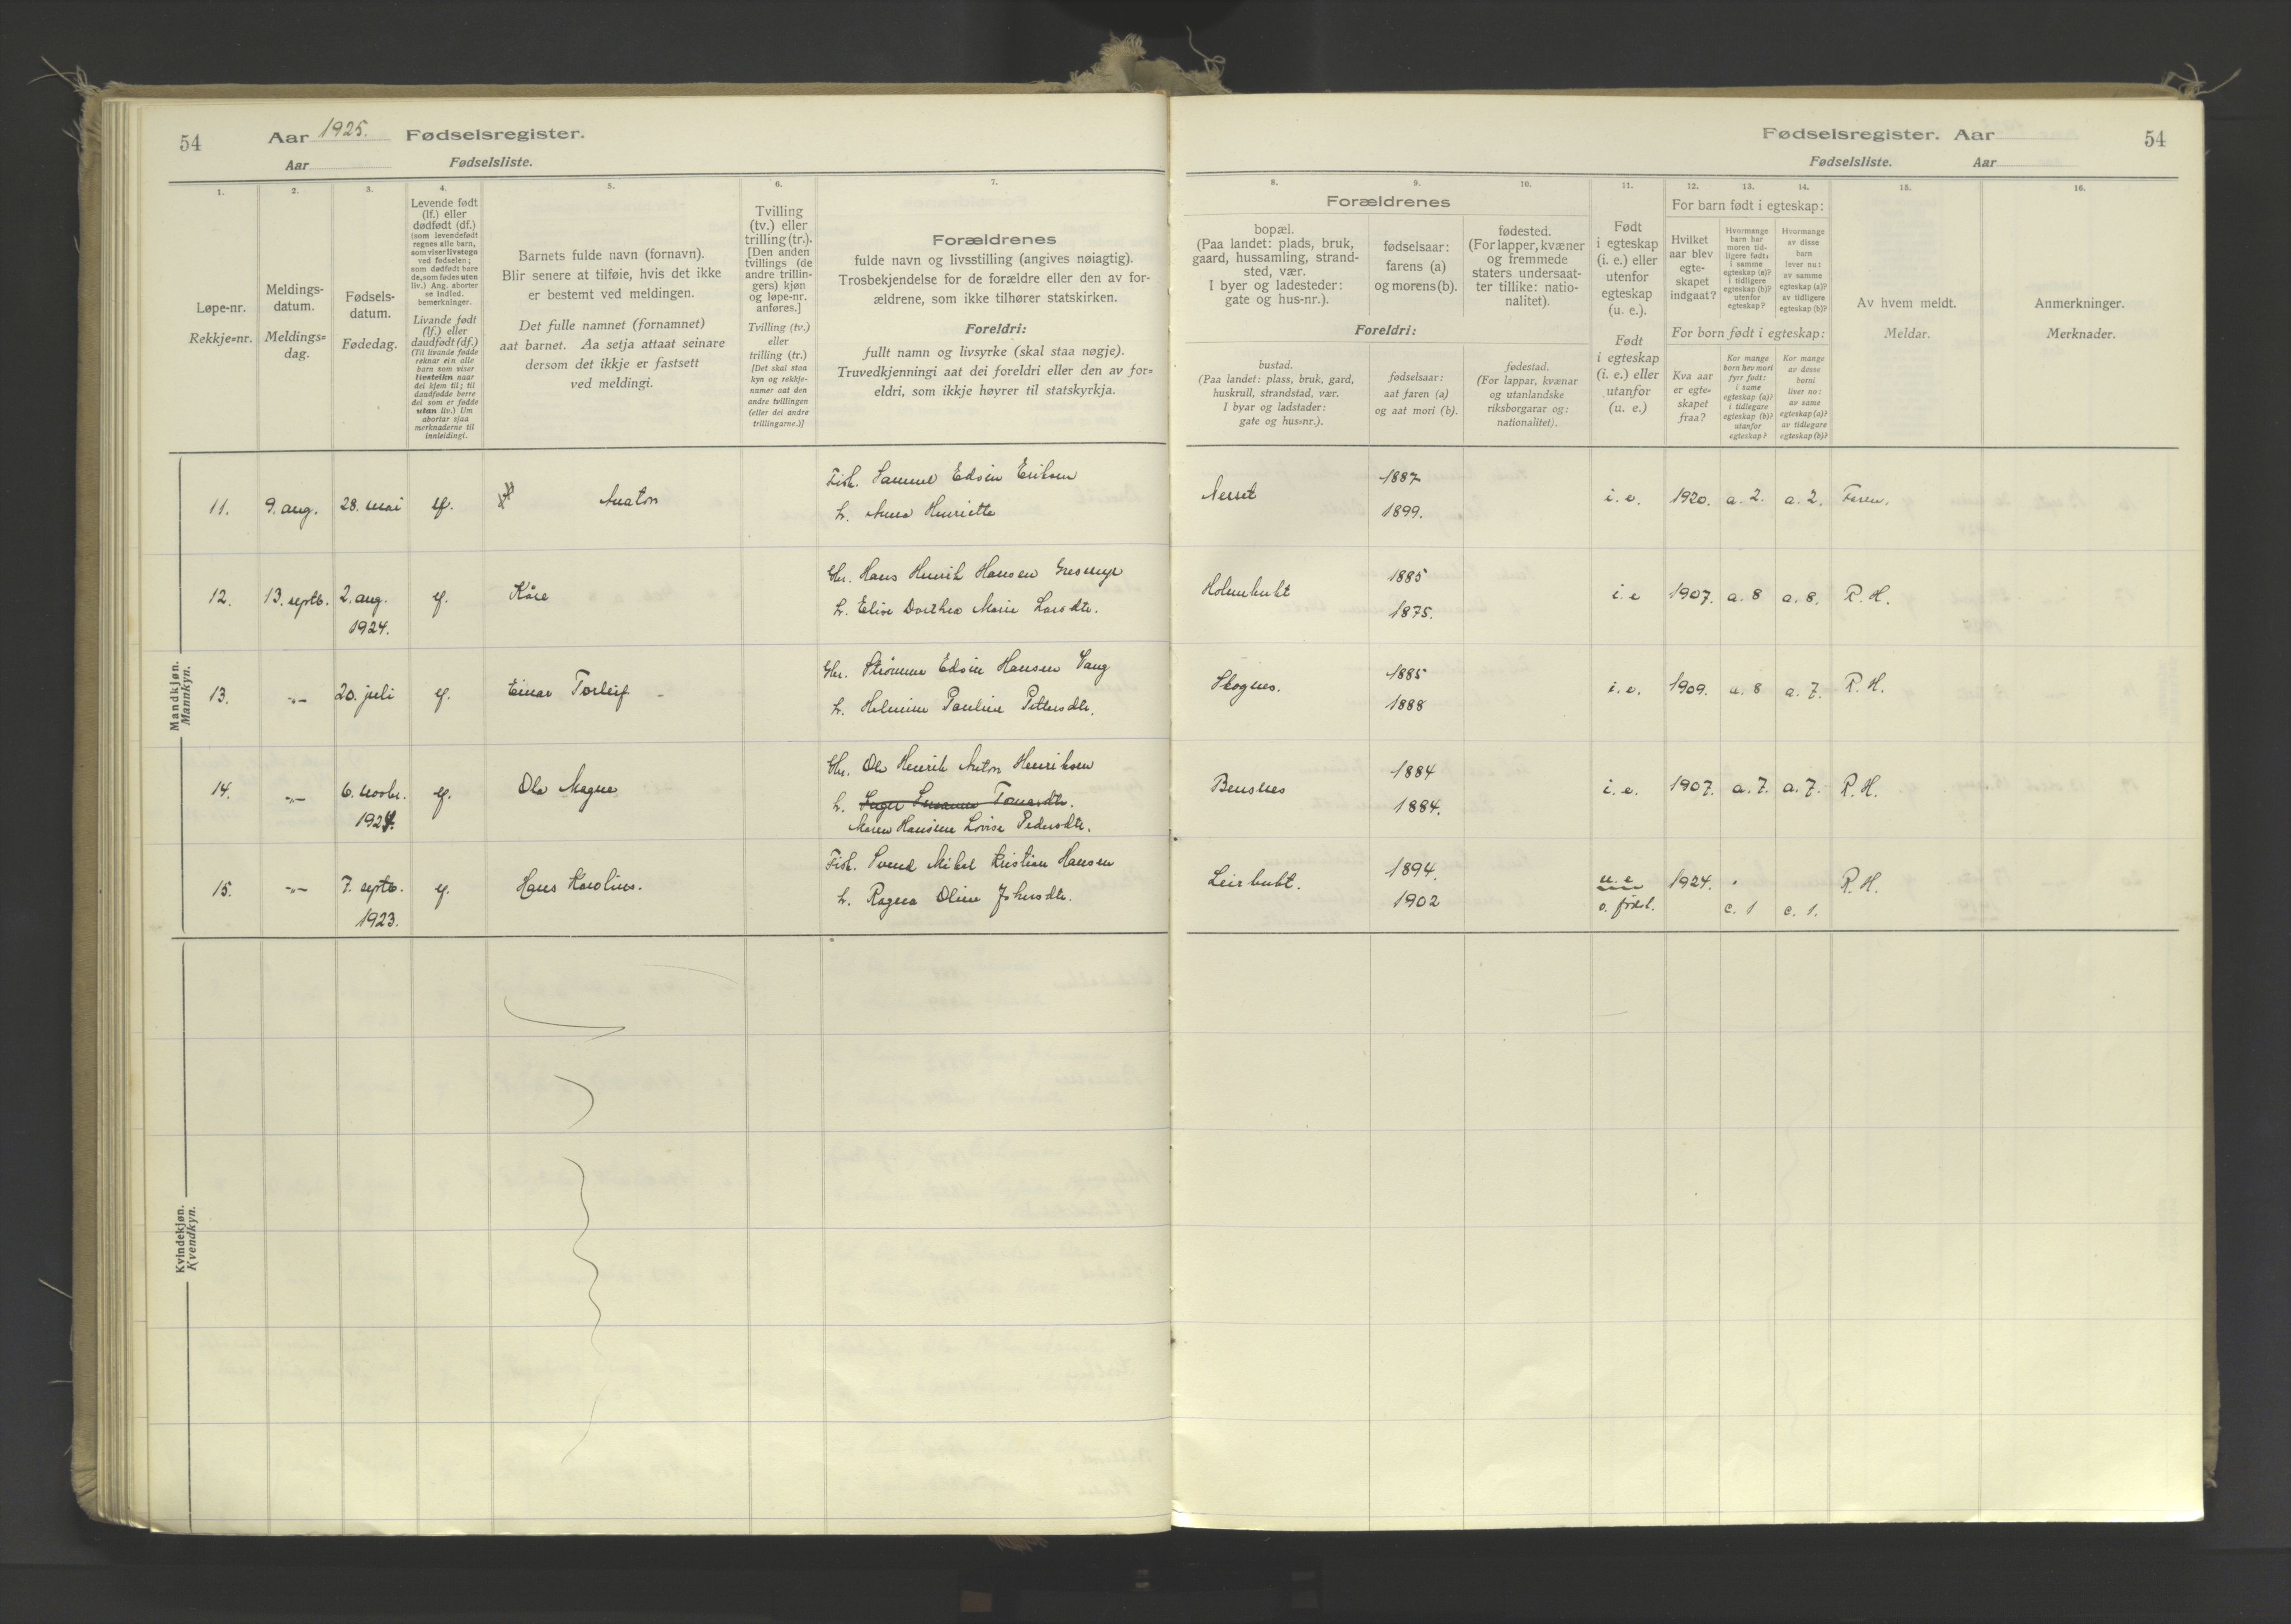 54
Aar 1925. Fødselsregister.
Aar Fødselsliste.
1.
2.
3.
4.
5.
6.
7.
Løpe-nr.
Rekkje=nr.
Meldings-
datum.
Meldings=
dag.
Fødsels-
datum.
Fødedag.
Levende født
(lf.) eller
dødfødt (df.)
(som levendefødt
regnes alle barn,
som viser livstegn
ved fødselen;
som dødfødt bare
de, som fødes uten
liv.) Ang. aborter
se indled.
bemerkninger.
Livande født
(lf.) eller
daudfødt (df.)
(Til livande fødde
reknar ein alle
barn som viser
livsteikn naar
dei kjem til; til
daudfødde berre
dei som er fødde
utan liv.) Um
abortar sjaa
merknaderne til
innleidingi.
Barnets fulde navn (fornavn).
Blir senere at tilføie, hvis det ikke
er bestemt ved meldingen.
Det fulle namnet (fornamnet)
aat barnet. Aa setja attaat seinare
dersom det ikkje er fastsett
ved meldingi.
Tvilling
(tv.) eller
trilling (tr.).
[Den anden
tvillings (de
andre trillin-
gers) kjøn
og løpe-nr.
anføres.]
Tvilling (tv.)
eller
trilling (tr.)
[Det skal staa
kyn og rekkje-
numer aat den
andre tvillingen
(eller dei andre
trillingarne.)]
Forældrenes
fulde navn og livsstilling (angives nøiagtig).
Trosbekjendelse for de forældre eller den av for-
ældrene, som ikke tilhører statskirken.
Foreldri:
fullt namn og livsyrke (skal staa nøgje).
Truvedkjenningi aat dei foreldri eller den av for=
eldri, som ikkje høyrer til statskyrkja.
Mandkjøn.
Mannkyn.
11. 9. aug. 28. mai lf. Anton
Fisk. Samuel Edvin Eriksen
h. Anna Henriette
12. 13. septb. 2. aug. 1924. lf. Kåre
Gbr. Hans Henrik Hansen
h. Elise Dorthea Marie Larsdtr.
13. -"- 20. juli lf. Einar Torleif
Gbr. Strømme Edvin Hansen Vang
h. Helmine Pauline Pettersdtr.
14. -"- 6. novbr. 1924. lf. Ola Magne
Gbr. Ole Henrik Anton Henriksen
h. Inger Susanne Tomasdtr.
Maren Hansine Lovise Pedersdtr.
15. -"- 7. septb. 1923. lf. Hans Karolius.
Fisk. Svend Mikal Kristian Hansen
h. Ragna Oline Johnsdtr.
Kvindekjøn.
Kvendkyn.
Fødselsregister. Aar
54
Fødselsliste. Aar
8.
9.
10.
11.
12.
13.
14.
15.
16.
Forældrenes
bopæl.
(Paa landet: plads, bruk,
gaard, hussamling, strand-
sted, vær.
I byer og ladesteder:
gate og hus-nr.).
fødselsaar:
farens (a)
og morens (b).
fødested.
(For lapper, kvæner
og fremmede
staters undersaat-
ter tillike: natio-
nalitet).
Foreldri:
bustad.
(Paa landet: plass, bruk, gard,
huskrull, strandstad, vær.
I byar og ladstader:
gate og hus=nr.).
fødselsaar:
aat faren (a)
og aat mori (b).
fødestad.
(For lappar, kvænar
og utanlandske
riksborgarar og:
nationalitet).
Født
i egteskap
(i. e.) eller
utenfor
egteskap
(u. e.).
Født
i egteskap
(i. e.) eller
utanfor
(u. e.)
For barn født i egteskap:
Hvilket
aar blev
egte-
skapet
indgaat?
Hvormange
barn har
moren tid-
ligere født:
i samme
egteskap (a)?
i tidligere
egteskap (b)?
utenfor
egteskap?
Hvormange
av disse
barn
lever nu:
av samme
egteskap (a)?
av tidligere
egteskap (b)?
For born født i egteskap:
Kva aar
er egte=
skapet
fraa?
Kor mange
born hev mori
fyrr født:
i same
egteskap (a)?
i tidlegare
egteskap (b)?
utanfor
egteskap?
Kor mange
av desse
borni
liver no:
av same
egteskap (a)?
av tidlegare
egteskap (b)?
Av hvem meldt.
Meldar.
Anmerkninger.
Merknader.
1887
1899.
i. e. 1920. a. 2. a. 2. Faren.
Holmbukt
1885
1875.
i. e 1907. a. 8 a. 8. R. H.
Skognes.
1885
1888
i. e. 1909. a. 8 a. 7. R. H.
Bensnes
1884
1884.
i. e. 1907. a. 7. a. 7. R. H.
Leirbukt.
1894.
1902
u. e 1924. R. H.
o. fødsl. c. 1 c. 1.